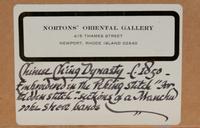 NORTONS' ORIENTAL GALLERY
415 THAMES STREET
NEWPORT, RHODE ISLAND 02840
Chinese Ching Dynasty C. 1850 -
Embroidered in the Peking stitch "For
bidden stitch" sections of a Manchu
robe sleeve bands